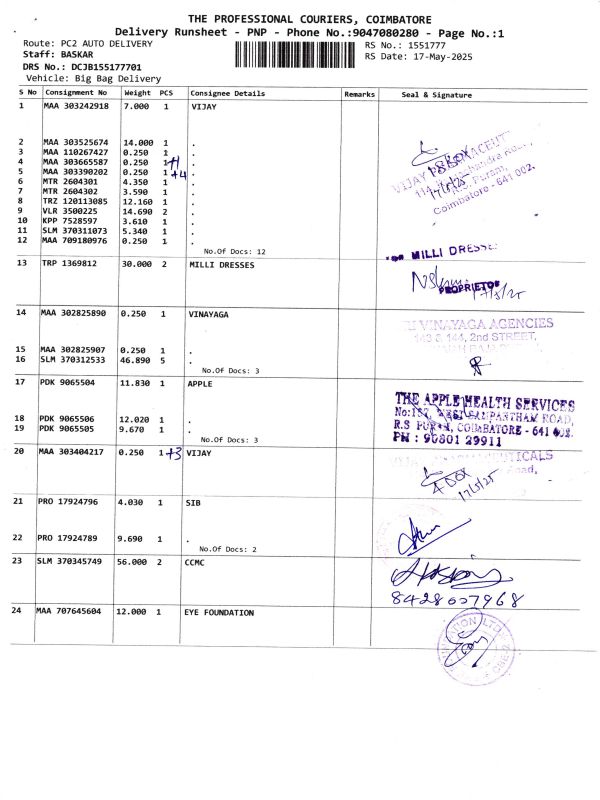 THE PROFESSIONAL COURIERS, COIMBATORE
Delivery Runsheet - PNP - Phone No.:9047080280 - Page No.:1
Route: PC2 AUTO DELIVERY
RS No.: 1551777
Staff: BASKAR
RS Date: 17-May-2025
DRS No.: DCJB155177701
Vehicle: Big Bag Delivery
S No Consignment No Weight PCS Consignee Details Remarks Seal & Signature
1 MAA 303242918 7.000 1 VIJAY
2 MAA 303525674 14.000 1 .
3 MAA 110267427 0.250 1 .
4 MAA 303665587 0.250 1 +1 .
5 MAA 303390202 0.250 1 +4 .
6 MTR 2604301 4.350 1 .
7 MTR 2604302 3.590 1 .
8 TRZ 120113085 12.160 1 .
9 VLR 3500225 14.690 2 .
10 KPP 7528597 3.610 1 .
11 SLM 370311073 5.340 1 .
12 MAA 709180976 0.250 1 .
No.Of Docs: 12
VIJAY
17/5/25
R.S. Puram,
Coimbatore - 641 002.
13 TRP 1369812 30.000 2 MILLI DRESSES
MILLI DRESSES
PROPRIETOR
17/5/25
14 MAA 302825890 0.250 1 VINAYAGA
15 MAA 302825907 0.250 1 .
16 SLM 370312533 46.890 5 .
No.Of Docs: 3
VINAYAGA AGENCIES
143 & 144, 2nd STREET,
17 PDK 9065504 11.830 1 APPLE
18 PDK 9065506 12.020 1 .
19 PDK 9065505 9.670 1 .
No.Of Docs: 3
THE APPLE HEALTH SERVICES
No:157, WEST SAMPANTHAM ROAD,
R.S PURAM, COIMBATORE - 641 002.
PH : 90801 29911
20 MAA 303404217 0.250 1 +3 VIJAY
4 BOX
17/5/25
21 PRO 17924796 4.030 1 SIB
22 PRO 17924789 9.690 1 .
No.Of Docs: 2
23 SLM 370345749 56.000 2 CCMC
8428007968
24 MAA 707645604 12.000 1 EYE FOUNDATION